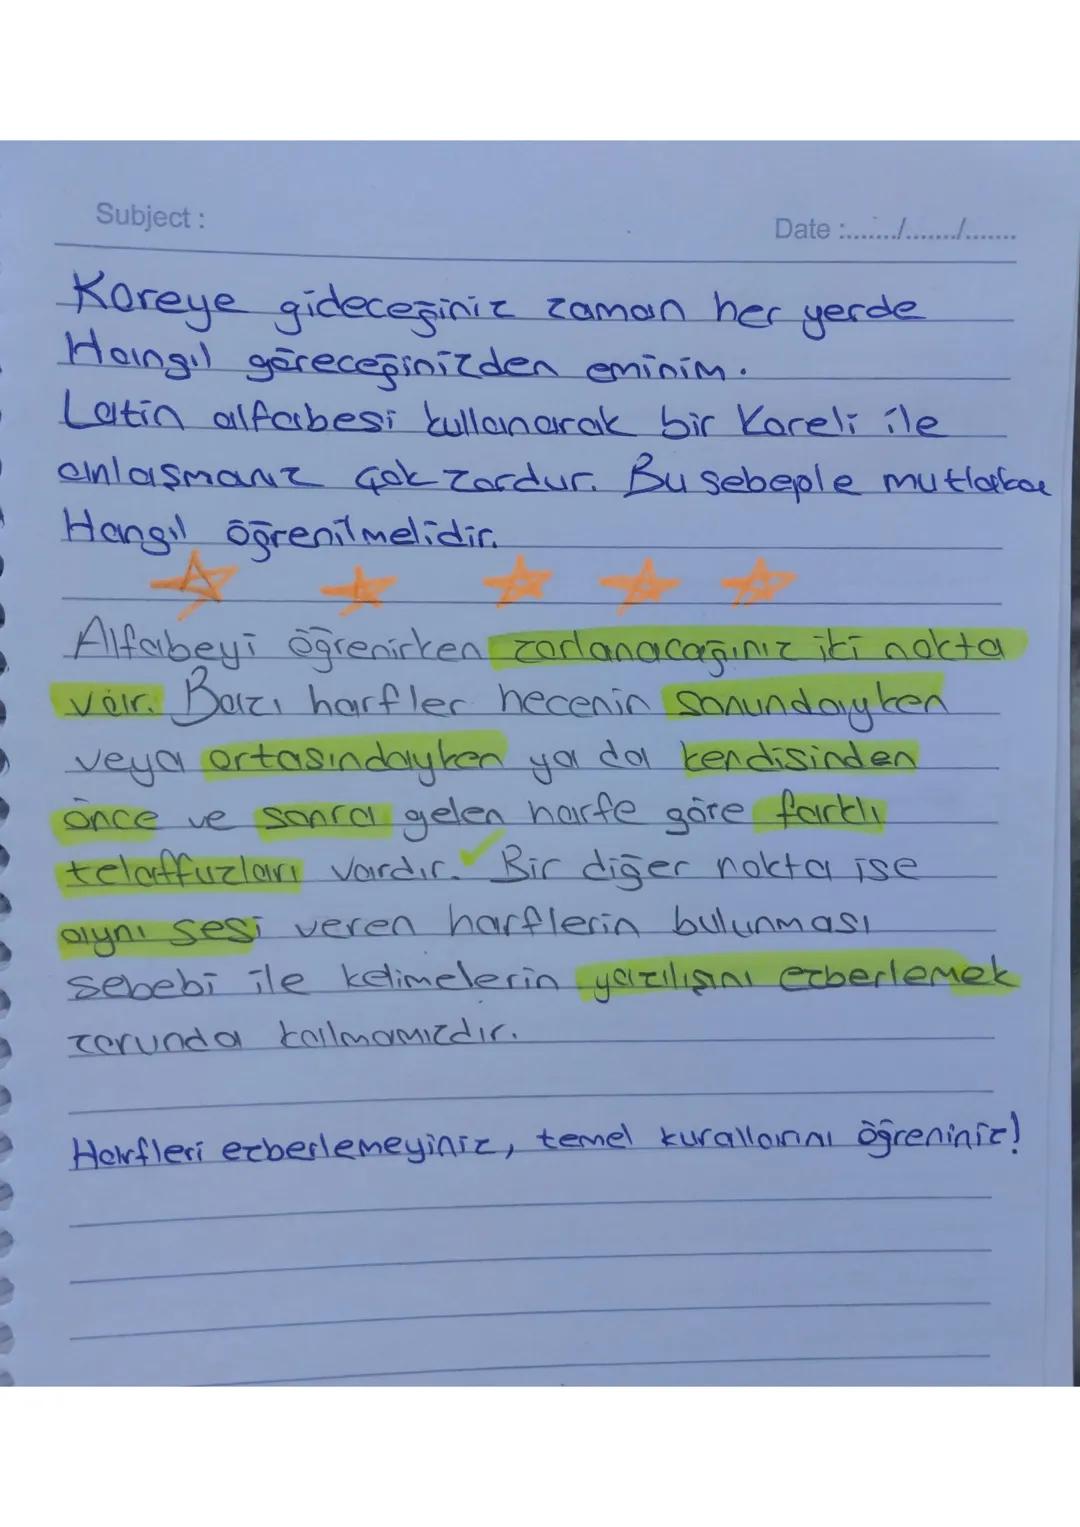 Subject :
Date :......../......../........
Koreye gideceğiniz zaman her yerde
Hangıl göreceğinizden eminim.
Latin alfabesi kullanarak bir Koreli ile
anlaşmanız çok zordur. Bu sebeple mutlaka
Hangıl öğrenilmelidir.
Alfabeyi öğrenirken zorlanacağınız iki nokta
var. Bazı harfler hecenin sonundayken
veya ortasındayken ya da kendisinden
önce ve sonra gelen harfe göre farklı
telaffuzları vardır. Bir diğer nokta ise
aynı sesi veren harflerin bulunması
sebebi ile kelimelerin yazılışını ezberlemek
zorunda kalmamızdır.
Harfleri ezberlemeyiniz, temel kurallarını öğreniniz!